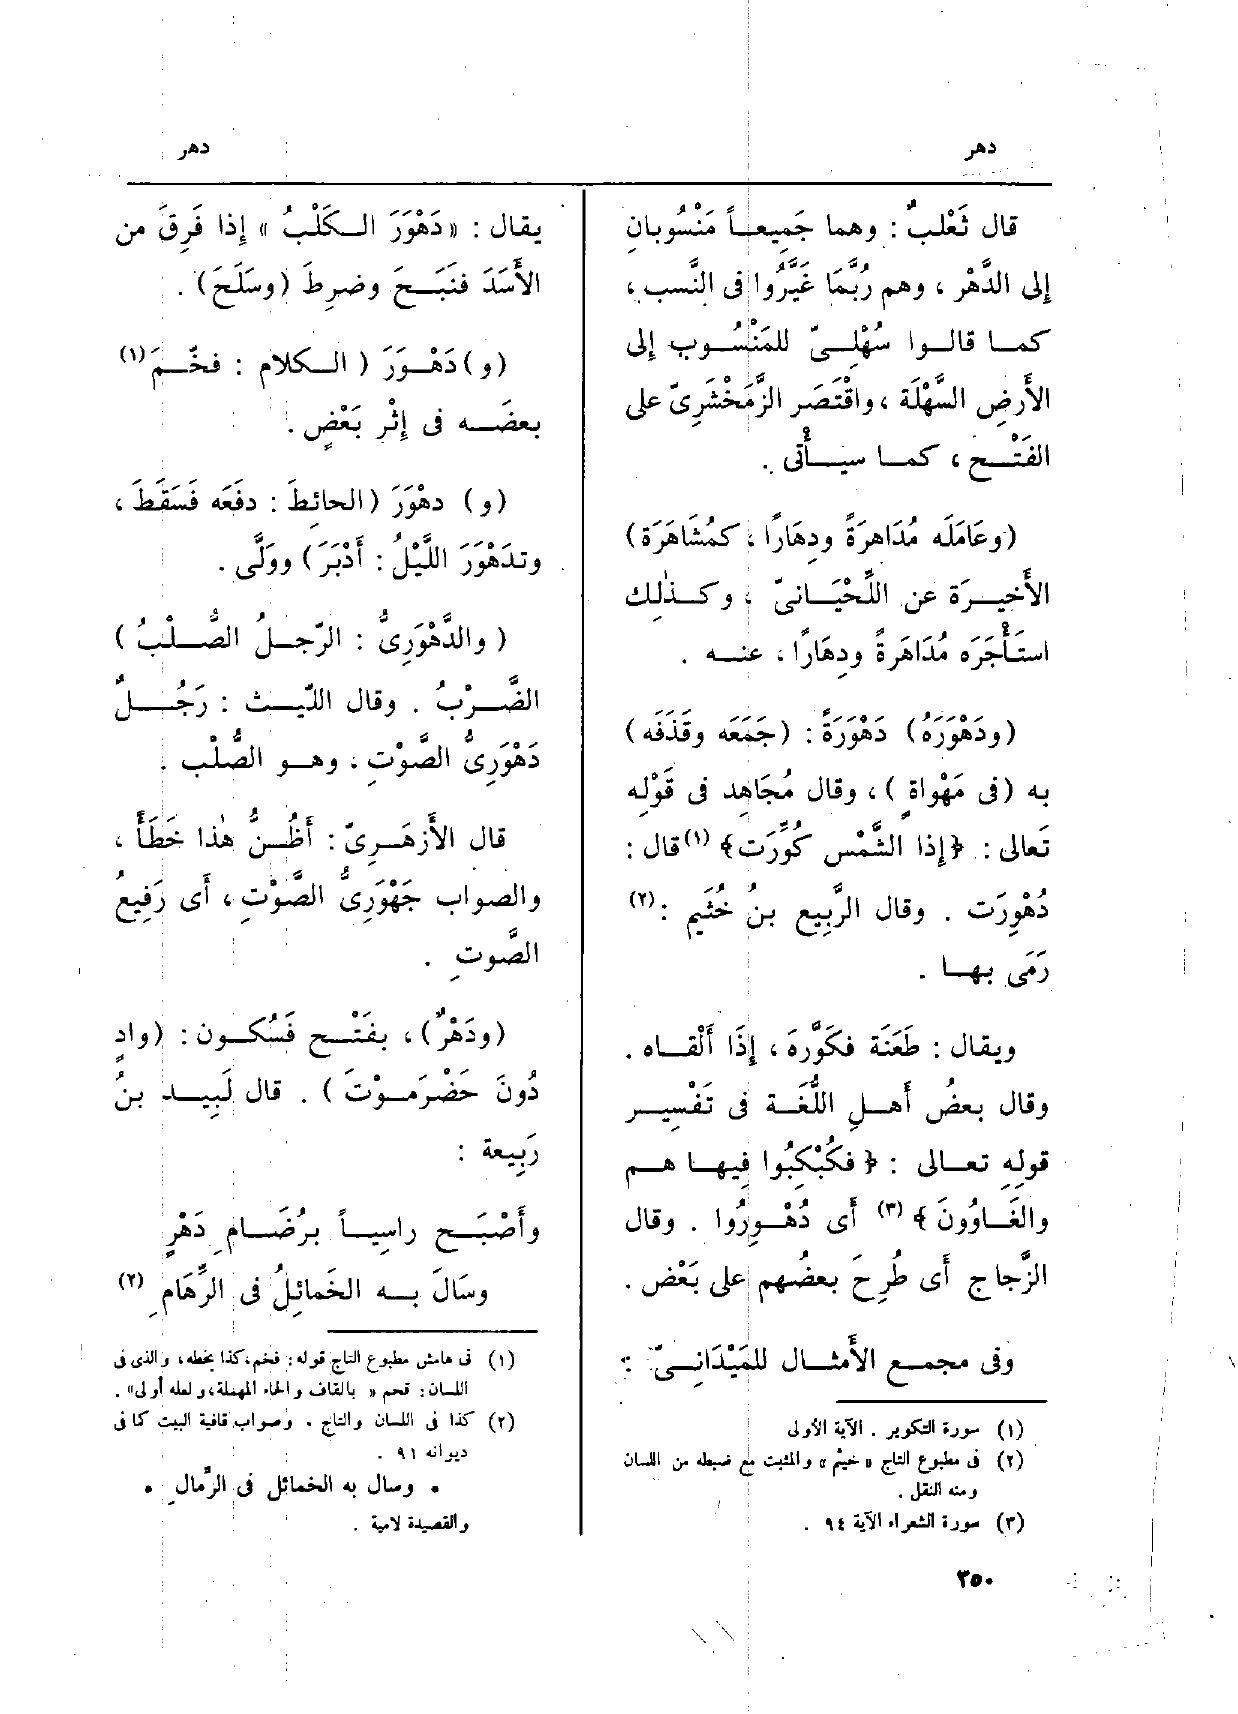 دهر
دهر
قال ثَعْلبٌ : وهما جَمِيعاً مَنْسُوبانِ
إلى الدَّهْر ، وهم رُبَّمَا غَيَّرُوا فى النَّسب ،
كما قالوا سُهْلِىّ للمَنْسُوب إلى
الأَرضِ السَّهْلَة ، واقْتَصَر الزَّمَخْشَرِىّ على
الفَتْح ، كما سيأْتى .
(وعَامَلَه مُدَاهرَةً ودِهَارًا ، كمُشَاهَرَة)
الأَخيرَة عن اللِّحْيَانىّ ، وكذٰلك
استَأْجَرَه مُدَاهَرَةً ودِهَارًا ، عنه .
(ودَهْوَرَهُ) دَهْوَرَةً : (جَمَعَه وقَذَفَه)
به (فى مَهْواةٍ ) ، وقال مُجَاهِد فى قَوْله
تَعالى : ﴿إذا الشَّمْس كُوِّرَت﴾ (١) قال :
دُهْوِرَت . وقال الرَّبِيع بنُ خُثَيم : (٢)
رَمَى بها .
ويقال : طَعَنَة فكَوَّرَهَ ، إذَا أَلْقَاه .
وقال بعضُ أَهلِ اللُّغَة فى تَفْسِير
قولِهِ تعالى : ﴿ فكُبْكِبُوا فِيها هم
والغَاوُونَ ﴾ (٣) أَى دُهْوِرُوا . وقال
الزَّجاج أَى طُرِحَ بعضُهم على بَعْض .
وفى مجمع الأَمثال للمَيْدَانِىّ :
(١) سورة التكوير . الآية الأولى
(٢) فى مطبوع التاج « خيثم » والمثبت مع ضبطه من اللسان
ومنه النقل .
(٣) سورة الشعراء الآية ٩٤ .
يقال : « دَهْوَرَ الكَلْبُ » إذا فَرِقَ من
الأَسَدَ فنَبَحَ وضرِطَ (وسَلَحَ) .
(و) دَهْوَرَ ( الكلام : فخَّمَ (١)
بعضَه فى إِثْر بَعْضٍ .
(و) دهْوَرَ (الحائطَ : دفَعَه فَسَقَطَ ،
وتدَهْوَرَ اللَّيْلُ : أَدْبَرَ) ووَلَّى .
( والدَّهْوَرِىُّ : الرّجلُ الصُّلْبُ )
الضَّرْبُ . وقال اللّيث : رَجُلٌ
دَهْوَرِىُّ الصَّوْتِ ، وهو الصُّلْب .
قال الأَزهَرِىّ : أَظُنُّ هٰذا خَطَأً ،
والصواب جَهْوَرِىُّ الصَّوْتِ ، أَى رَفِيعُ
الصَّوتِ .
(ودَهْرٌ) ، بفَتْح فسُكون : (وادٍ
دُونَ حَضْرَمَوْتَ ) . قال لَبِيد بنُ
رَبِيعة :
وأَصْبَح راسِياً برُضَامِ دَهْرٍ
وسَالَ به الخمَائلُ فى الرِّهَامِ (٢)
(١) فى هامش مطبوع التاج قوله : فخم ، كذا بخطه ، والذى فى
اللسان : قحم « بالقاف والحاء المهملة ، ولعله أولى» .
(٢) كذا فى اللسان والتاج . وصواب قافية البيت كما فى
ديوانه ٩١ .
• وسال به الخمائل فى الرِّمالِ •
والقصيدة لامية .
٣٥٠